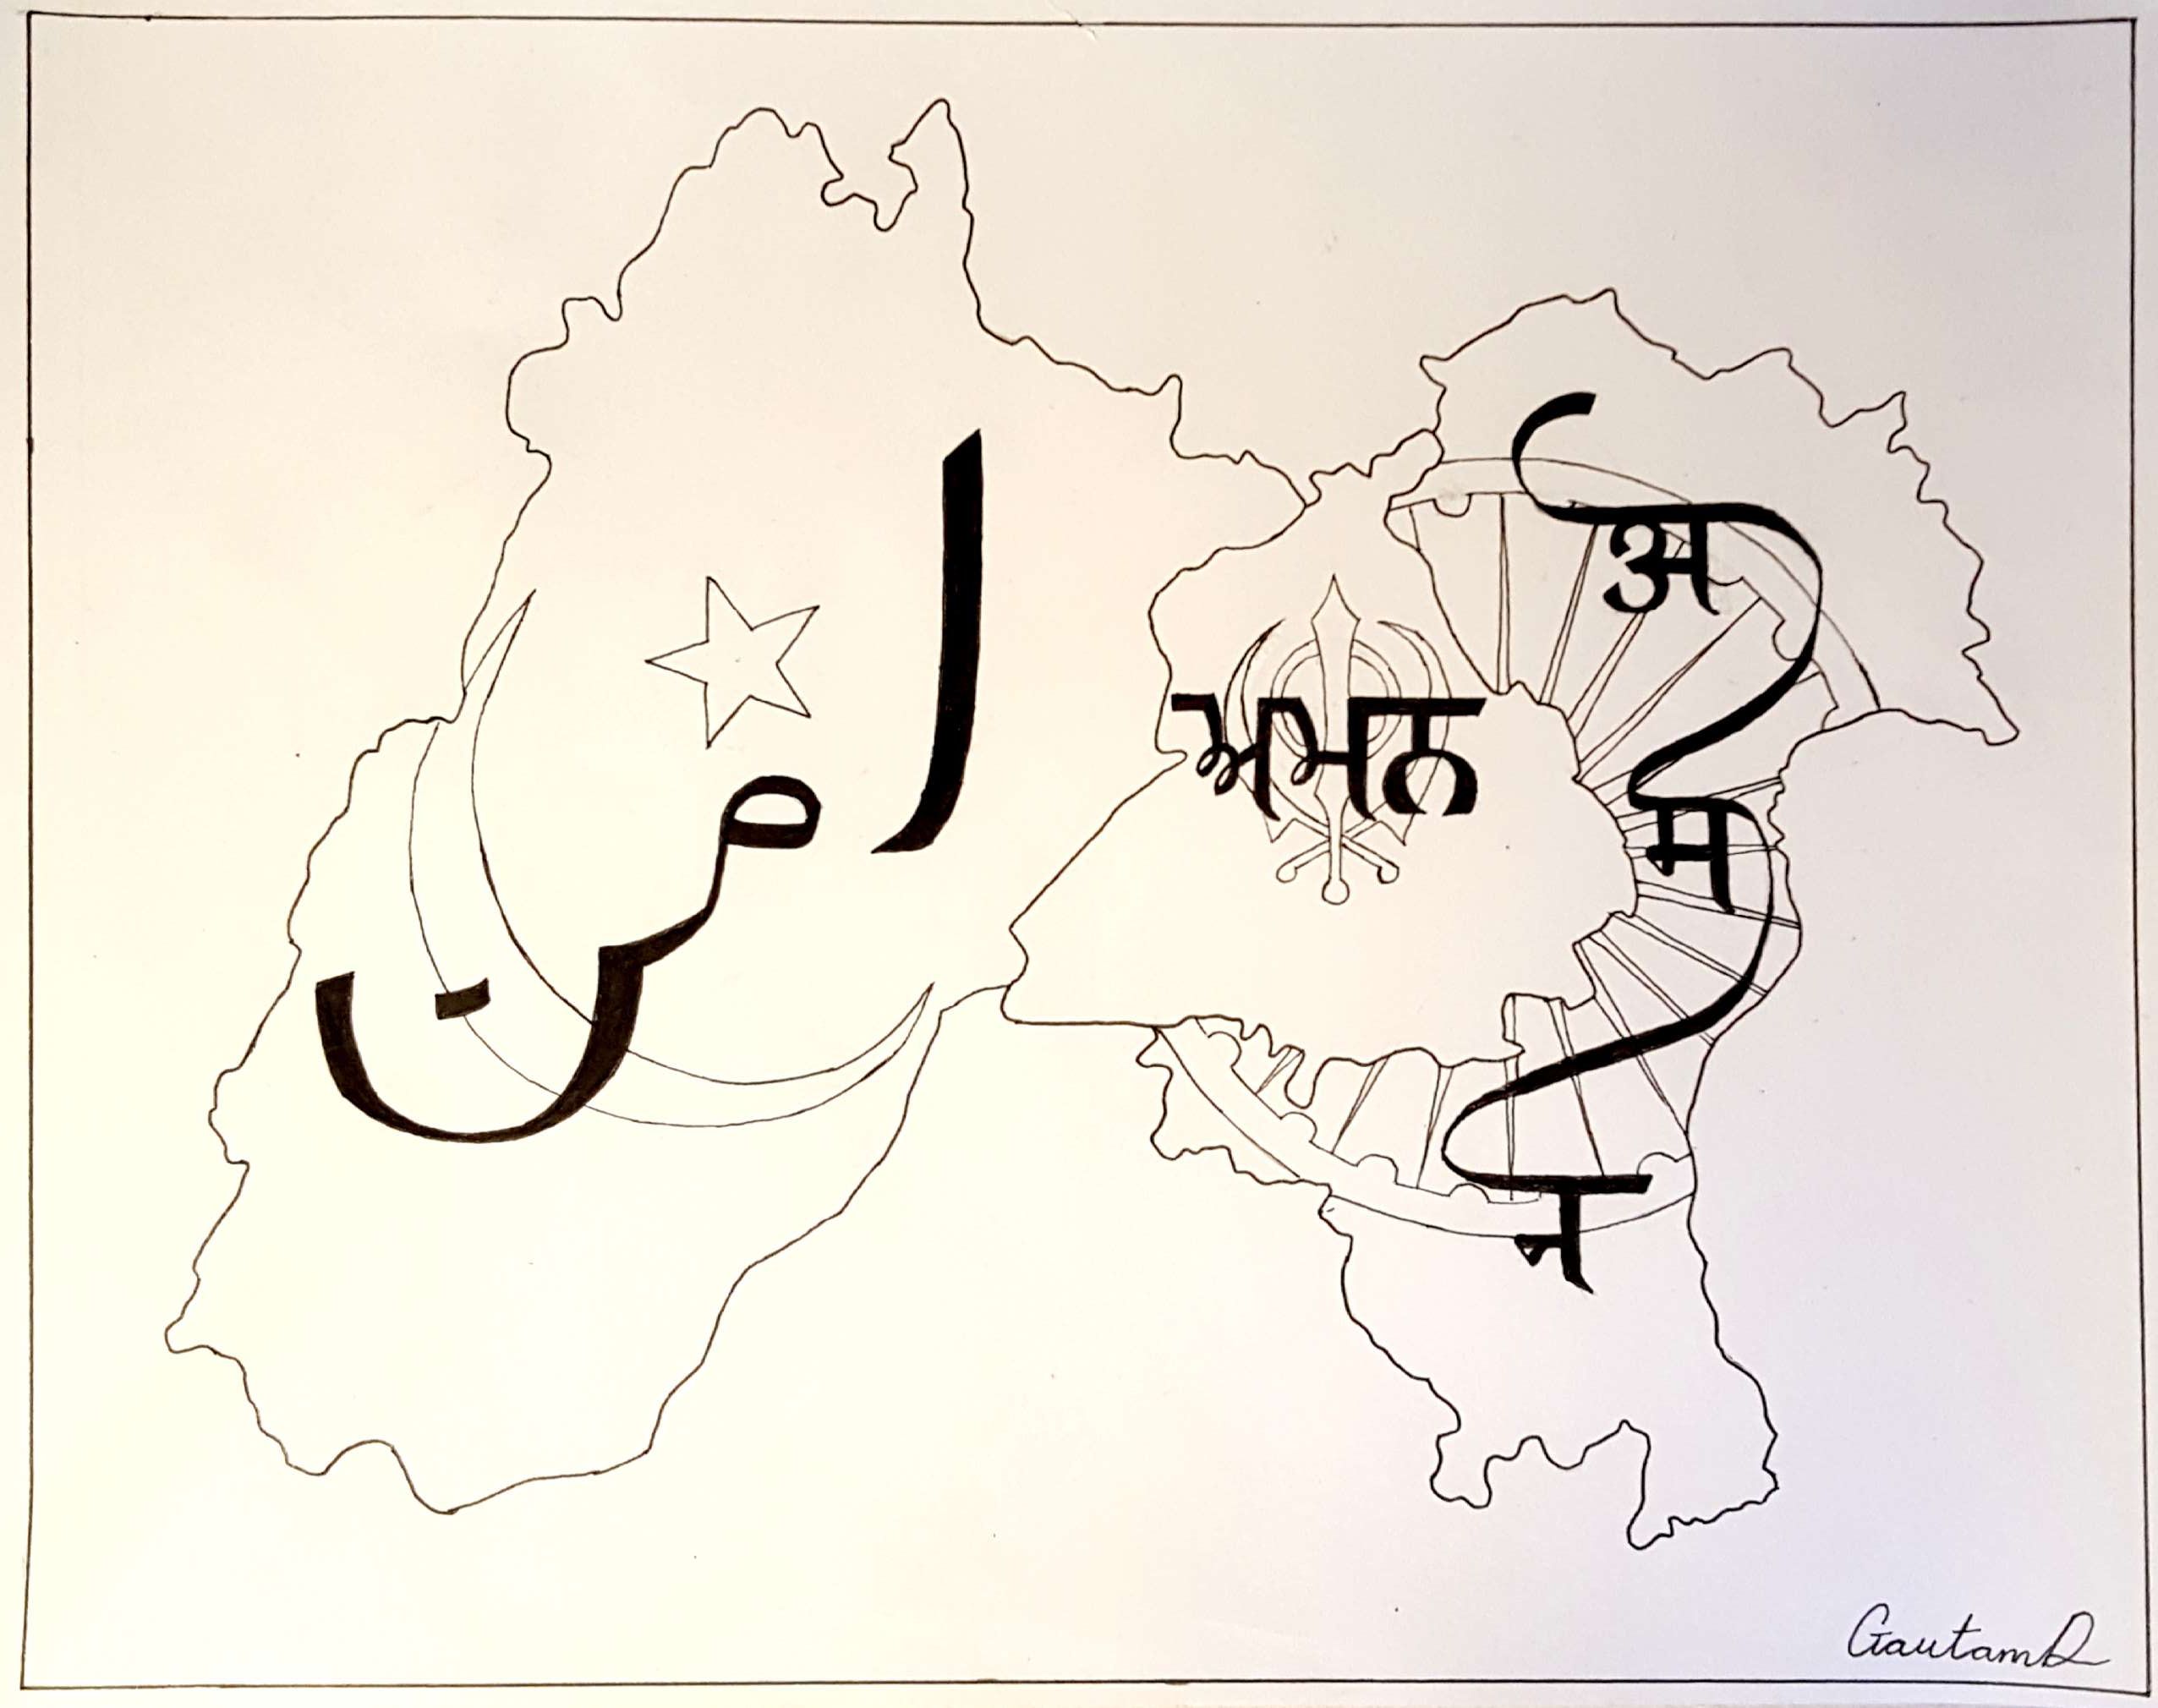 امن
ਅਮਨ
अमन
GautamD